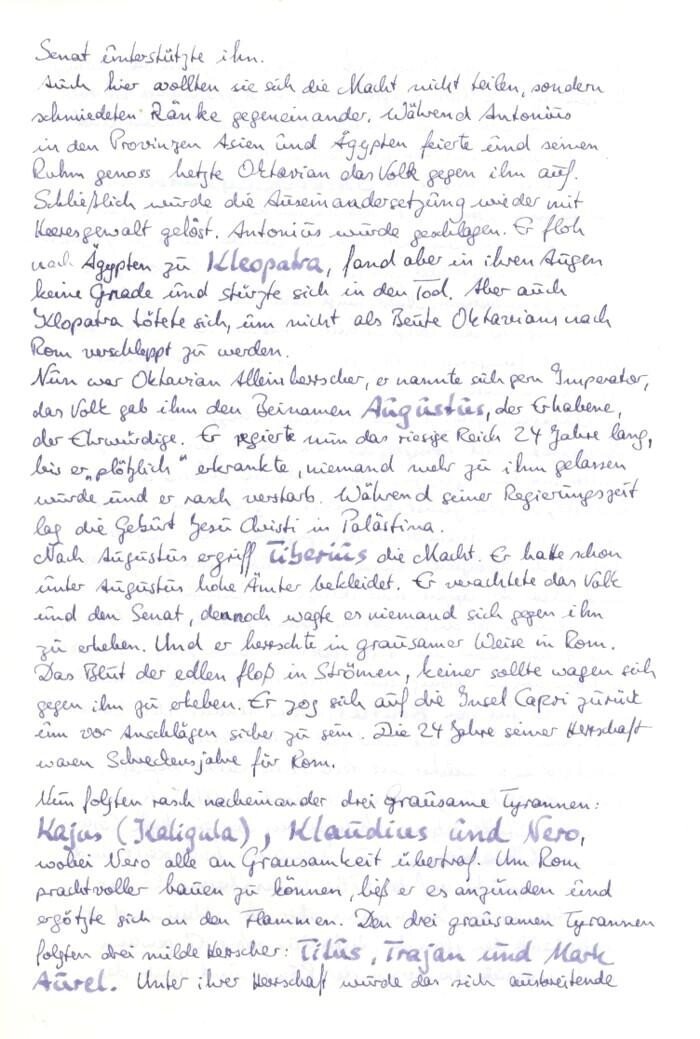 Senat unterstützte ihn.
Auch hier wollten sie sich die Macht nicht teilen, sondern
schmiedeten Ränke gegeneinander. Während Antonius
in den Provinzen Asien und Ägypten feierte und seinen
Ruhm genoss hetzte Oktavian das Volk gegen ihn auf.
Schließlich wurde die Auseinandersetzung wieder mit
Heeresgewalt gelöst. Antonius wurde geschlagen. Er floh
nach Ägypten zu Kleopatra, fand aber in ihren Augen
keine Gnade und stürzte sich in den Tod. Aber auch
Klopatra tötete sich, um nicht als Beute Oktavians nach
Rom verschleppt zu werden.
Nun war Oktavian Alleinherrscher, er nannte sich gern Imperator,
das Volk gab ihm den Beinamen Augustus, der Erhabene,
der Ehrwürdige. Er regierte nun das riesige Reich 24 Jahre lang,
bis er „plötzlich“ erkrankte, niemand mehr zu ihm gelassen
wurde und er rasch verstarb. Während seiner Regierungszeit
lag die Geburt Jesu Christi in Palästina.
Nach Augustus ergriff Tiberius die Macht. Er hatte schon
unter Augustus hohe Ämter bekleidet. Er verachtete das Volk
und den Senat, dennoch wagte es niemand sich gegen ihn
zu erheben. Und er herrschte in grausamer Weise in Rom.
Das Blut der edlen floß in Strömen, keiner sollte wagen sich
gegen ihn zu erheben. Er zog sich auf die Insel Capri zurück
um vor Anschlägen sicher zu sein. Die 24 Jahre seiner Herrschaft
waren Schreckensjahre für Rom.
Nun folgten rasch nacheinander drei grausame Tyrannen:
Kajus (Kaligula), Klaudius und Nero,
wobei Nero alle an Grausamkeit übertraf. Um Rom
prachtvoller bauen zu können, ließ er es anzünden und
ergötzte sich an den Flammen. Den drei grausamen Tyrannen
folgten drei milde Herrscher: Titus, Trajan und Mark
Aurel. Unter ihrer Herrschaft wurde das sich ausbreitende